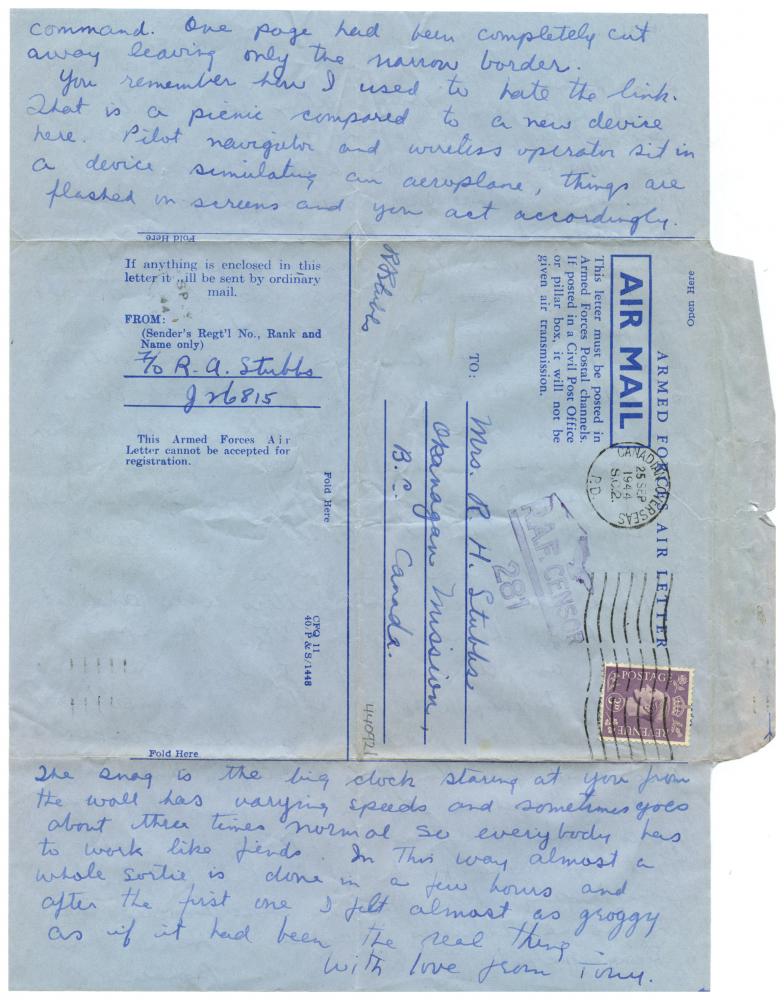 command. One page had been completely cut
away leaving only the narrow border.
You remember how I used to hate the link.
That is a picnic compared to a new device
here. Pilot navigator and wireless operator sit in
a device simulating an aeroplane, things are
flashed on screens and you act accordingly.
Fold Here
If anything is enclosed in this
letter it will be sent by ordinary
mail.
FROM:
(Sender's Regt'l No., Rank and
Name only)
F/O R. A. Stubbs
J26815
This Armed Forces Air
Letter cannot be accepted for
registration.
Fold Here
CFQ 11
40/P & S/1448
Open Here
ARMED FORCES AIR LETTER
AIR MAIL
This letter must be posted in
Armed Forces Postal channels.
If posted in a Civil Post Office
or pillar box, it will not be
given air transmission.
RAStubbs
TO:
Mrs. R. H. Stubbs
Okanagan Mission,
B.C. Canada.
440921
CANADIAN OVERSEAS
25 SEP
1944
S.C.2.
P.D.
R.A.F. CENSOR
281
POSTAGE
REVENUE
3D
Fold Here
The snag is the big clock staring at you from
the wall has varying speeds and sometimes goes
about three times normal so everybody has
to work like fiends. In this way almost a
whole sortie is done in a few hours and
after the first one I felt almost as groggy
as if it had been the real thing.
With love from Tony.